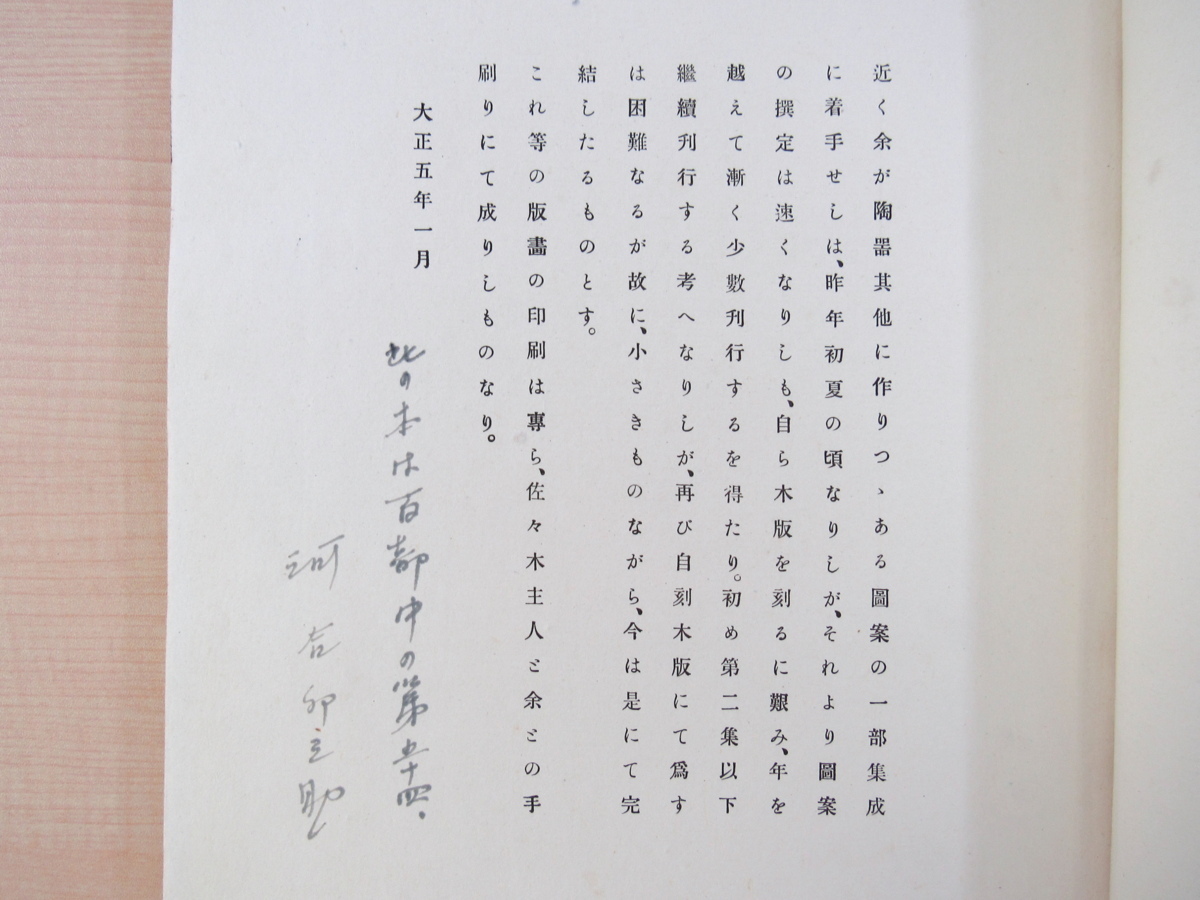 近く余が陶器其他に作りつゝある圖案の一部集成
に着手せしは、昨年初夏の頃なりしが、それより圖案
の撰定は速くなりしも、自ら木版を刻るに艱み、年を
越えて漸く少數刊行するを得たり。初め第二集以下
繼續刊行する考へなりしが、再び自刻木版にて爲す
は困難なるが故に、小さきものながら、今は是にて完
結したるものとす。
これ等の版畫の印刷は專ら、佐々木主人と余との手
刷りにて成りしものなり。
大正五年一月
此の本は百部中の第五十四、
河合卯之助